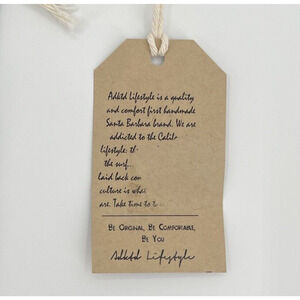 Adktd Lifestyle is a quality
and comfort first handmade
Santa Barbara brand. We are
addicted to the Calif
lifestyle: th
the surf...
laid back con
culture is wha
are. Take time to
Be Original, Be Comfortable,
Be You
Adktd Lifestyle